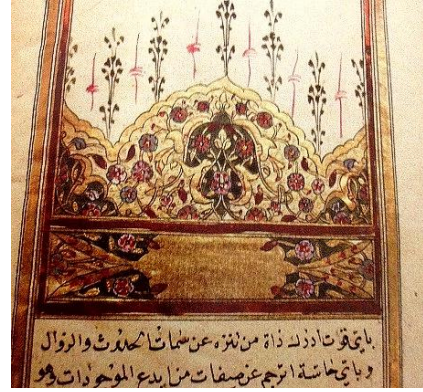 باي قوت ادرك ذات من تنزه عن سمات الحدوث والزوال
وباي حاسة اترجم عن صفات من ابدع الموجودات وهو